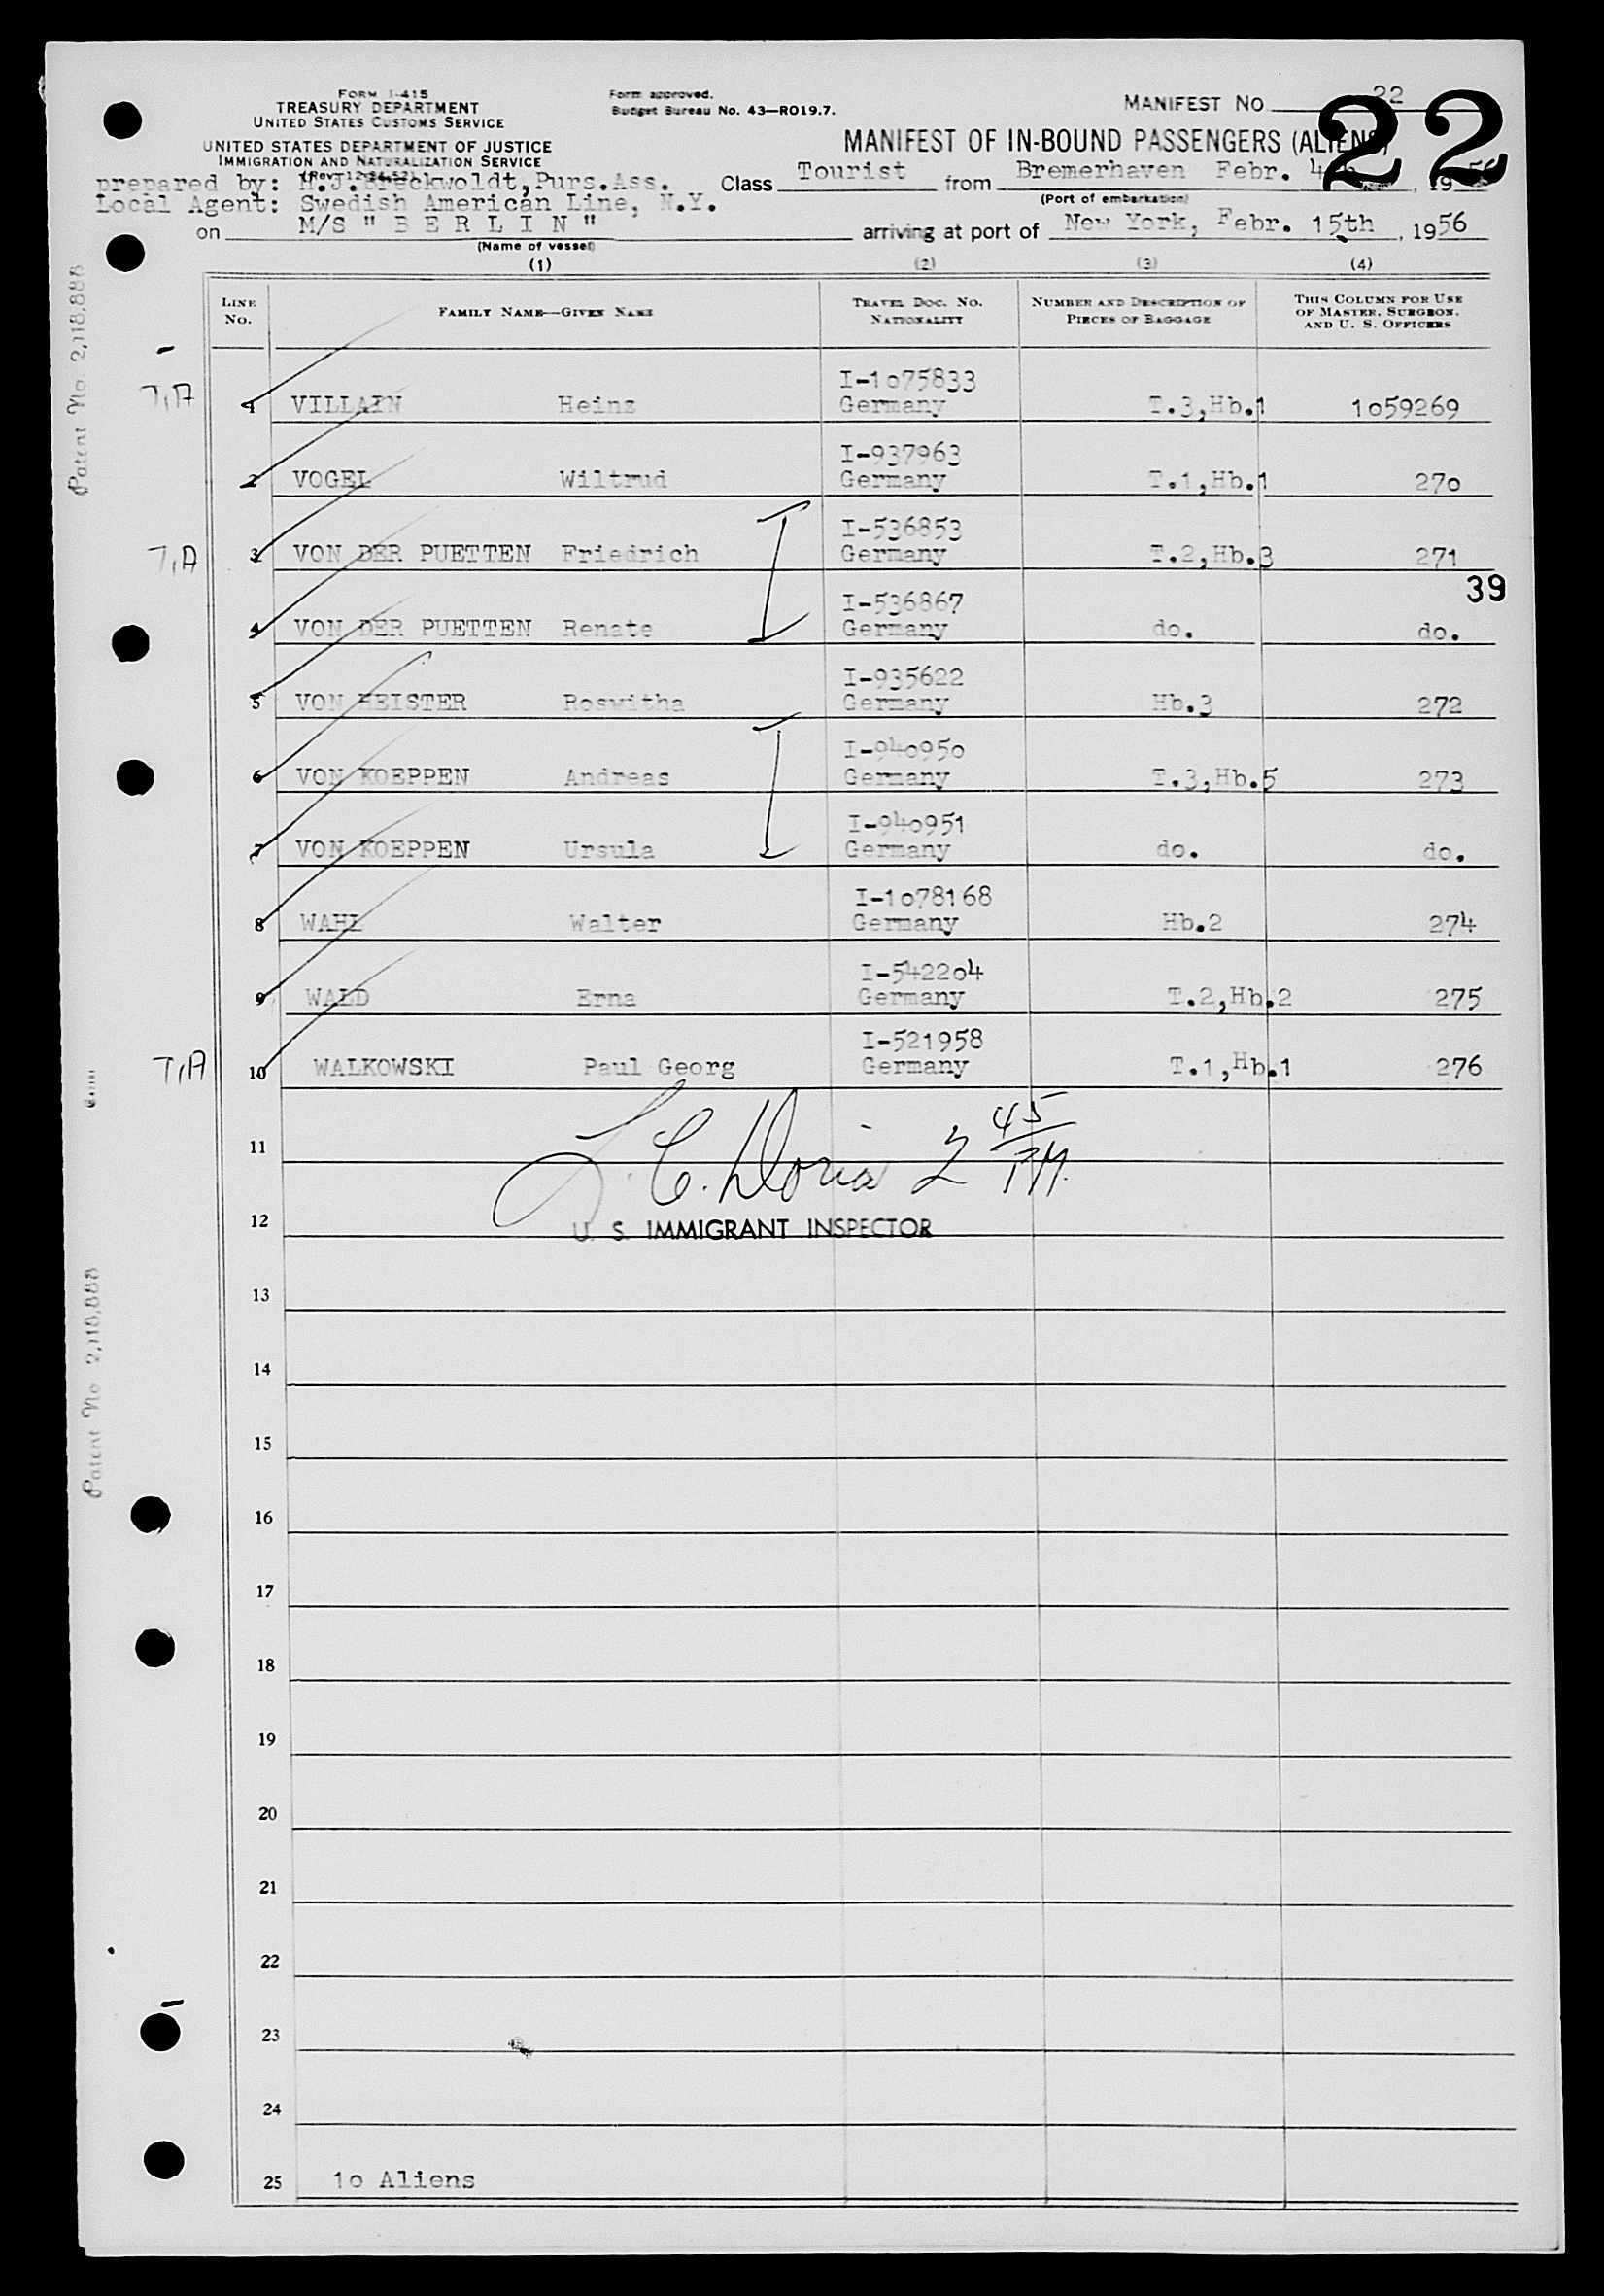 FORM I-415
TREASURY DEPARTMENT
UNITED STATES CUSTOMS SERVICE
UNITED STATES DEPARTMENT OF JUSTICE
IMMIGRATION AND NATURALIZATION SERVICE
(Rev. 12-24-52)
Form approved.
Budget Bureau No. 43—RO19.7.
MANIFEST NO 22
22
MANIFEST OF IN-BOUND PASSENGERS (ALIENS)
prepared by: H.J.Breckwoldt,Purs.Ass.
Class Tourist from Bremerhaven Febr. , 1956
(Port of embarkation)
Local Agent: Swedish American Line, N.Y.
on M/S " B E R L I N " arriving at port of New York, Febr. 15th , 1956
(Name of vessel)
(1) (2) (3) (4)
LINE NO. FAMILY NAME—GIVEN NAME TRAVEL DOC. NO. NATIONALITY NUMBER AND DESCRIPTION OF PIECES OF BAGGAGE THIS COLUMN FOR USE OF MASTER, SURGEON, AND U. S. OFFICERS
I-1o75833
T,A 1 VILLAIN Heinz Germany T.3,Hb.1 1o59269
I-937963
2 VOGEL Wiltrud Germany T.1,Hb.1 27o
I-536853
T,A 3 VON DER PUETTEN Friedrich Germany T.2,Hb.3 271
39
I-536867
4 VON DER PUETTEN Renate Germany do. do.
I-935622
5 VON HEISTER Roswitha Germany Hb.3 272
I-94o95o
6 VON KOEPPEN Andreas Germany T.3,Hb.5 273
I-94o951
7 VON KOEPPEN Ursula Germany do. do.
I-1o78168
8 WAHL Walter Germany Hb.2 274
I-5422o4
9 WALD Erna Germany T.2,Hb.2 275
I-521958
T,A 10 WALKOWSKI Paul Georg Germany T.1,Hb.1 276
11
2 45 PM.
12
U. S. IMMIGRANT INSPECTOR
13
14
15
16
17
18
19
20
21
22
23
24
25 1o Aliens
Patent No. 2,118,888
Patent No 2,118,888